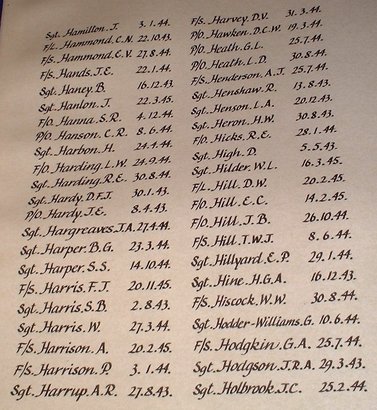 Sgt. Hamilton. J. 3. 1. 44.
F/L. Hammond. C. N. 22. 10. 43.
F/S. Hammond. E. V. 27. 8. 44.
F/S. Hands. J. E. 22. 1. 44.
Sgt. Haney. B. 16. 12. 43.
Sgt. Hanlon. J. 22. 3. 45.
F/O. Hanna. S. R. 4. 12. 44.
P/O. Hanson. C. R. 8. 6. 44.
Sgt. Harbon. H. 24. 4. 44.
F/O. Harding. L. W. 24. 9. 44.
Sgt. Harding. R. E. 30. 8. 44.
Sgt. Hardy. D. F. J. 30. 1. 43.
P/O. Hardy. J. E. 8. 4. 43.
Sgt. Hargreaves. J. A. 27. 4. 44.
Sgt. Harper. B. G. 23. 3. 44.
Sgt. Harper. S. S. 14. 10. 44.
F/S. Harris. F. J. 20. 11. 45.
Sgt. Harris. S. B. 2. 8. 43.
Sgt. Harris. W. 27. 3. 44.
F/S. Harrison. A. 20. 2. 45.
F/S. Harrison. P. 3. 1. 44.
Sgt. Harrup. A. R. 27. 8. 43.
F/S. Harvey. D. V. 31. 3. 44.
P/O. Hawken. D. C. W. 19. 3. 44.
P/O. Heath. G. L. 25. 7. 44.
P/O. Heath. L. D. 30. 8. 44.
F/S. Henderson. A. J. 25. 7. 44.
Sgt. Henshaw. R. 13. 8. 43.
Sgt. Henson. L. A. 20. 12. 43.
Sgt. Heron. H. W. 30. 8. 43.
F/O. Hicks. R. E. 28. 1. 44.
Sgt. High. D. 5. 5. 43.
Sgt. Hilder. W. L. 16. 3. 45.
F/L. Hill. D. W. 20. 2. 45.
F/O. Hill. E. C. 14. 2. 45.
F/O. Hill. J. B. 26. 10. 44.
F/S. Hill. T. W. J. 8. 6. 44.
Sgt. Hillyard. E. P. 29. 1. 44.
Sgt. Hine. H. G. A. 16. 12. 43.
F/S. Hiscock. W. W. 30. 8. 44.
Sgt. Hodder-Williams. G. 10. 6. 44.
F/S. Hodgkin. G. A. 25. 7. 44.
Sgt. Hodgson. J. R. A. 29. 3. 43.
Sgt. Holbrook. J. C. 25. 2. 44.